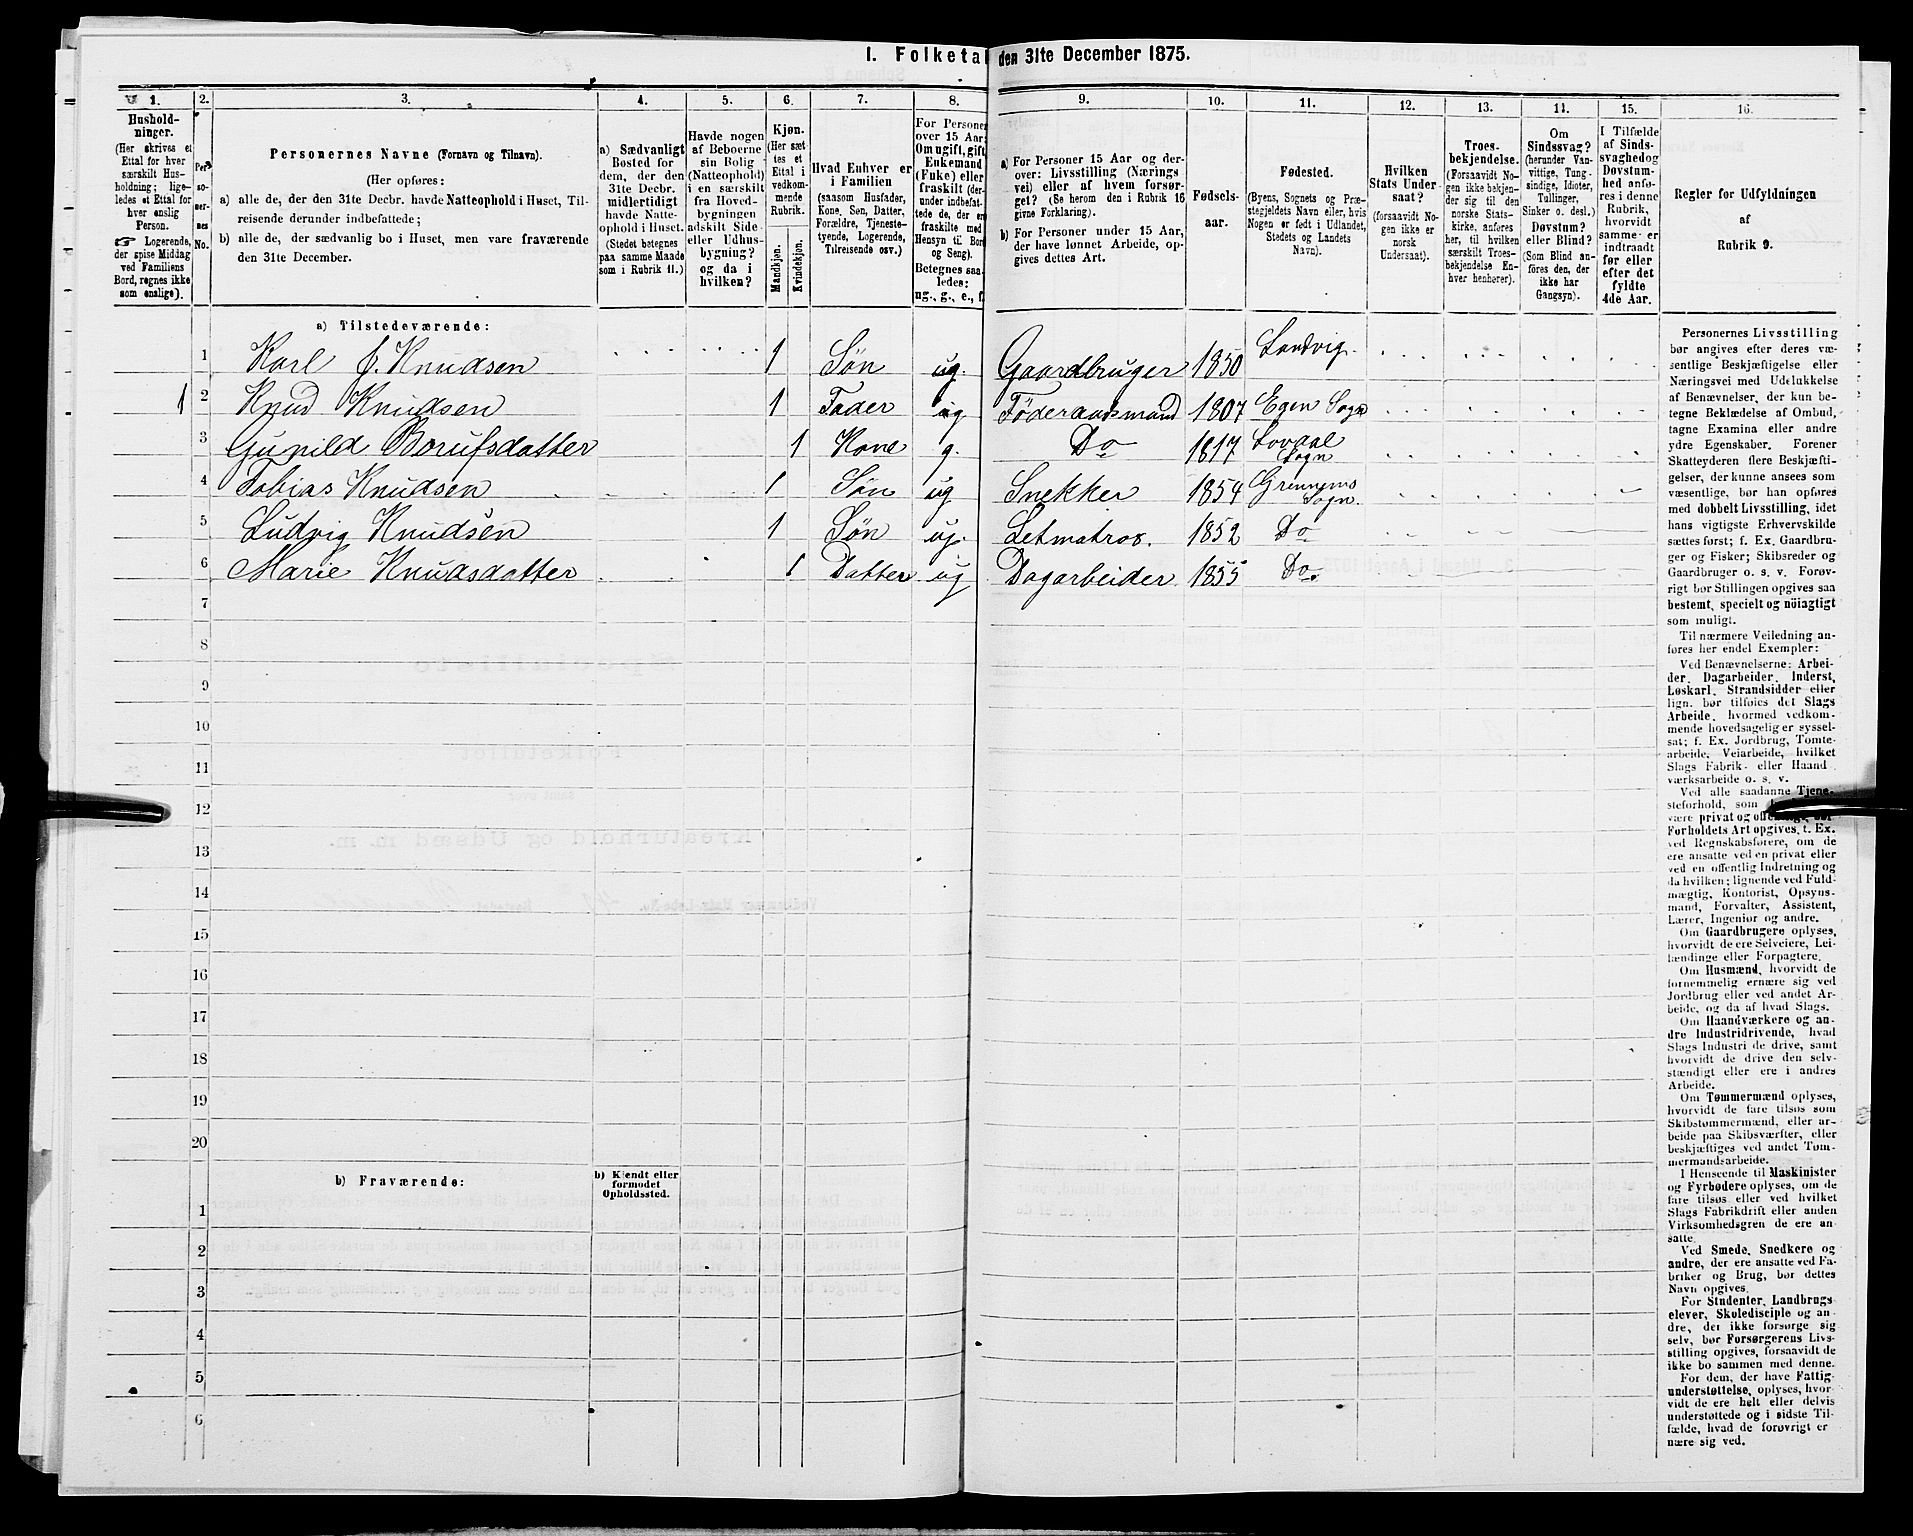 I. Folketal den 31te December 1875.
1. 2. 3. 4. 5. 6. 7. 8. 9. 10. 11. 12. 13. 14. 15. 16.
Hushold-
ninger.
(Her skrives et
Ettal for hver
særskilt Hus-
holdning; lige-
ledes et Ettal for
hver enslig
Person.
☞ Logerende,
der spise Middag
ved Familiens
Bord, regnes ikke
som enslige).
Per-
so-
ner-
nes
No.
Personernes Navne (Fornavn og Tilnavn).
(Her opføres:
a) alle de, der den 31te Decbr. havde Natteophold i Huset, Til-
reisende derunder indbefattede;
b) alle de, der sædvanlig bo i Huset, men vare fraværende
den 31te December.
a) Sædvanligt
Bosted for
dem, der den
31te Decbr.
midlertidigt
havde Natte-
ophold i Huset.
(Stedet betegnes
paa samme Maade
som i Rubrik 11.)
Havde nogen
af Beboerne
sin Bolig
(Natteophold)
i en særskilt
fra Hoved-
bygningen
adskilt Side-
eller Udhus-
bygning?
og da i
hvilken?
Kjøn.
(Her sæt-
tes et
Ettal i
vedkom-
mende
Rubrik.
Mandkjøn.
Kvindekjøn.
Hvad Enhver er
i Familien
(saasom Husfader,
Kone, Søn, Datter,
Forældre, Tjeneste-
tyende, Logerende,
Tilreisende osv.)
For Personer
over 15 Aar:
Om ugift, gift,
Enkemand
(Fuke) eller
fraskilt (der-
under indbefat-
tede de, der ere
fraskilte med
Hensyn til Bord
og Seng).
Betegnes saa-
ledes:
ug., g., e., f.
a) For Personer 15 Aar og der-
over: Livsstilling (Nærings-
vei) eller af hvem forsør-
get? (Se herom den i Rubrik 16
givne Forklaring).
b) For Personer under 15 Aar,
der have lønnet Arbeide, op-
gives dettes Art.
Fødsels-
aar.
Fødested.
(Byens, Sognets og Præ-
stegjeldets Navn eller, hvis
Nogen er født i Udlandet,
Stedets og Landets
Navn).
Hvilken
Stats Under-
saat?
(forsaavidt No-
gen ikke er
norsk
Undersaat).
Troes-
bekjendelse.
(Forsaavidt No-
gen ikke bekjen-
der sig til den
norske Stats-
kirke, anføres
her, til hvilken
særskilt Troes-
bekjendelse En-
hver henhører).
Om
Sindssvag?
(herunder Van-
vittige, Tung-
sindige, Idioter,
Tullinger,
Sinker o. desl.)
Døvstum?
eller Blind?
(Som Blind an-
føres den, der
ikke har
Gangsyn).
I Tilfælde
af Sinds-
svaghed og
Døvstum-
hed anfø-
res i denne
Rubrik,
hvorvidt
samme er
indtraadt
før eller
efter det
fyldte
4de Aar.
Regler for Udfyldningen
af
Rubrik 9.
a) Tilstedeværende:
1 Karl J. Knudsen 1 Søn ug. Gaardbruger 1850 Landvig.
1 2 Knud Knudsen 1 Fader ug Föderaadsmand 1807 Egen Sogn
3 Gunild Borufsdatter 1 Kone g. Do 1817 Lovaal Sogn
4 Tobias Knudsen 1 Søn ug Snekker 1854 Sogn.
5 Ludvig Knudsen 1 Søn ug. Letmatros. 1852 Do
6 Marie Knudsdatter 1 Datter ug Dagarbeider 1855 Do.
7
8
9
10
11
12
13
14
15
16
17
18
19
20
b) Fraværende:
b) Kjendt eller
formodet
Opholdssted.
1
2
3
4
5
6
Personernes Livsstilling
bør angives efter deres væ-
sentlige Beskjæftigelse eller
Næringsvei med Udelukkelse
af Benævnelser, der kun be-
tegne Beklædelse af Ombud,
tagne Examina eller andre
ydre Egenskaber. Forener
Skatteyderen flere Beskjæfti-
gelser, der kunne ansees som
væsentlige, bør han opføres
med dobbelt Livsstilling, idet
hans vigtigste Erhvervskilde
sættes først; f. Ex. Gaardbru-
ger og Fisker; Skibsreder og
Gaardbruger o. s. v. Forøv-
rigt bør Stillingen opgives saa
bestemt, specielt og nöiagtigt
som muligt.
Til nærmere Veiledning an-
føres her endel Exempler:
Ved Benævnelserne: Arbei-
der, Dagarbeider, Inderst,
Løskarl, Strandsidder eller
lign. bør tilføies det Slags
Arbeide, hvormed vedkom-
mende hovedsagelig er syssel-
sat; f. Ex. Jordbrug, Tomte-
arbeide, Veiarbeide, hvilket
Slags Fabrik- eller Haand
værksarbeide o. s. v.
Ved alle saadanne Tjene-
steforhold, som
være privat og
Forholdets Art opgives, t. Ex.
ved Regnskabsførere, om de
ere ansatte ved en privat eller
ved en offentlig Indretning og
da hvilken; lignende ved Fuld-
mægtig, Kontorist, Opsyns-
mand, Forvalter, Assistent,
Lærer, Ingenior og andre.
Om Gaardbrugere oplyses,
hvorvidt de ere Selveiere, Lei-
lændinge eller Forpagtere.
Om Husmænd, hvorvidt de
fornemmelig ernære sig ved
Jordbrug eller ved andet Ar-
beide, og da af hvad Slags.
Om Haandværkere og an-
dre Industridrivende, hvad
Slags Industri de drive, samt
hvorvidt de drive den selv-
stændigt eller ere i andres
Arbeide.
Om Tømmermænd oplyses,
hvorvidt de fare tilsøs som
Skibstømmermænd, eller ar-
beide paa Skibsværfter, eller
beskjæftiges ved andet Tøm-
mermandsarbeide.
I Henseende til Maskinister
og Fyrbødere oplyses, om de
fare tilsøs eller ved hvilket
Slags Fabrikdrift eller anden
Virksomhedsgren de ere an-
satte.
Ved Smede, Snedkere og
andre, der ere ansatte ved Fa-
briker og Brug, bør dettes
Navn opgives.
For Studenter, Landbrugs-
elever, Skoledisciple og an-
dre, der ikke forsørge sig
selv, bør Forsørgerens Livs-
stilling opgives, forsaavidt de
ikke bo sammen med denne.
For dem, der have Fattig-
understøttelse, oplyses, hvor-
vidt de ere helt eller delvis
understøttede og i sidste Til-
fælde, hvad de forøvrigt er-
nære sig ved.